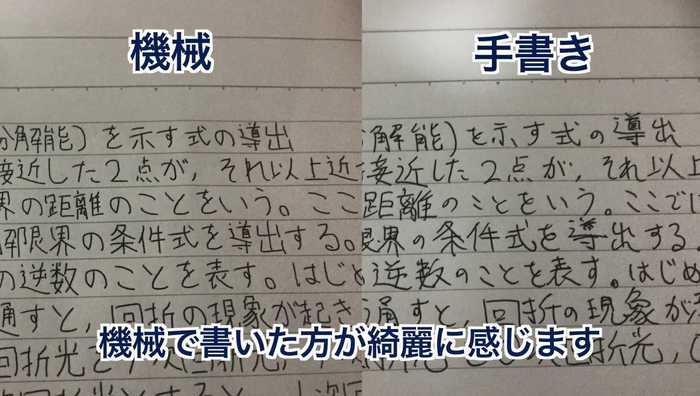 機械
手書き
分解能)を示す式の導出
接近した2点が,それ以上近
界の距離のことをいう。ここ
解限界の条件式を導出する。
の逆数のことを表す。はじめ
通すと,回折の現象が起き
分解能)を示す式の導出
接近した2点が,それ以上
距離のことをいう。ここでは
限界の条件式を導出する
逆数のことを表す。はじめ
通すと,回折の現象が
機械で書いた方が綺麗に感じます